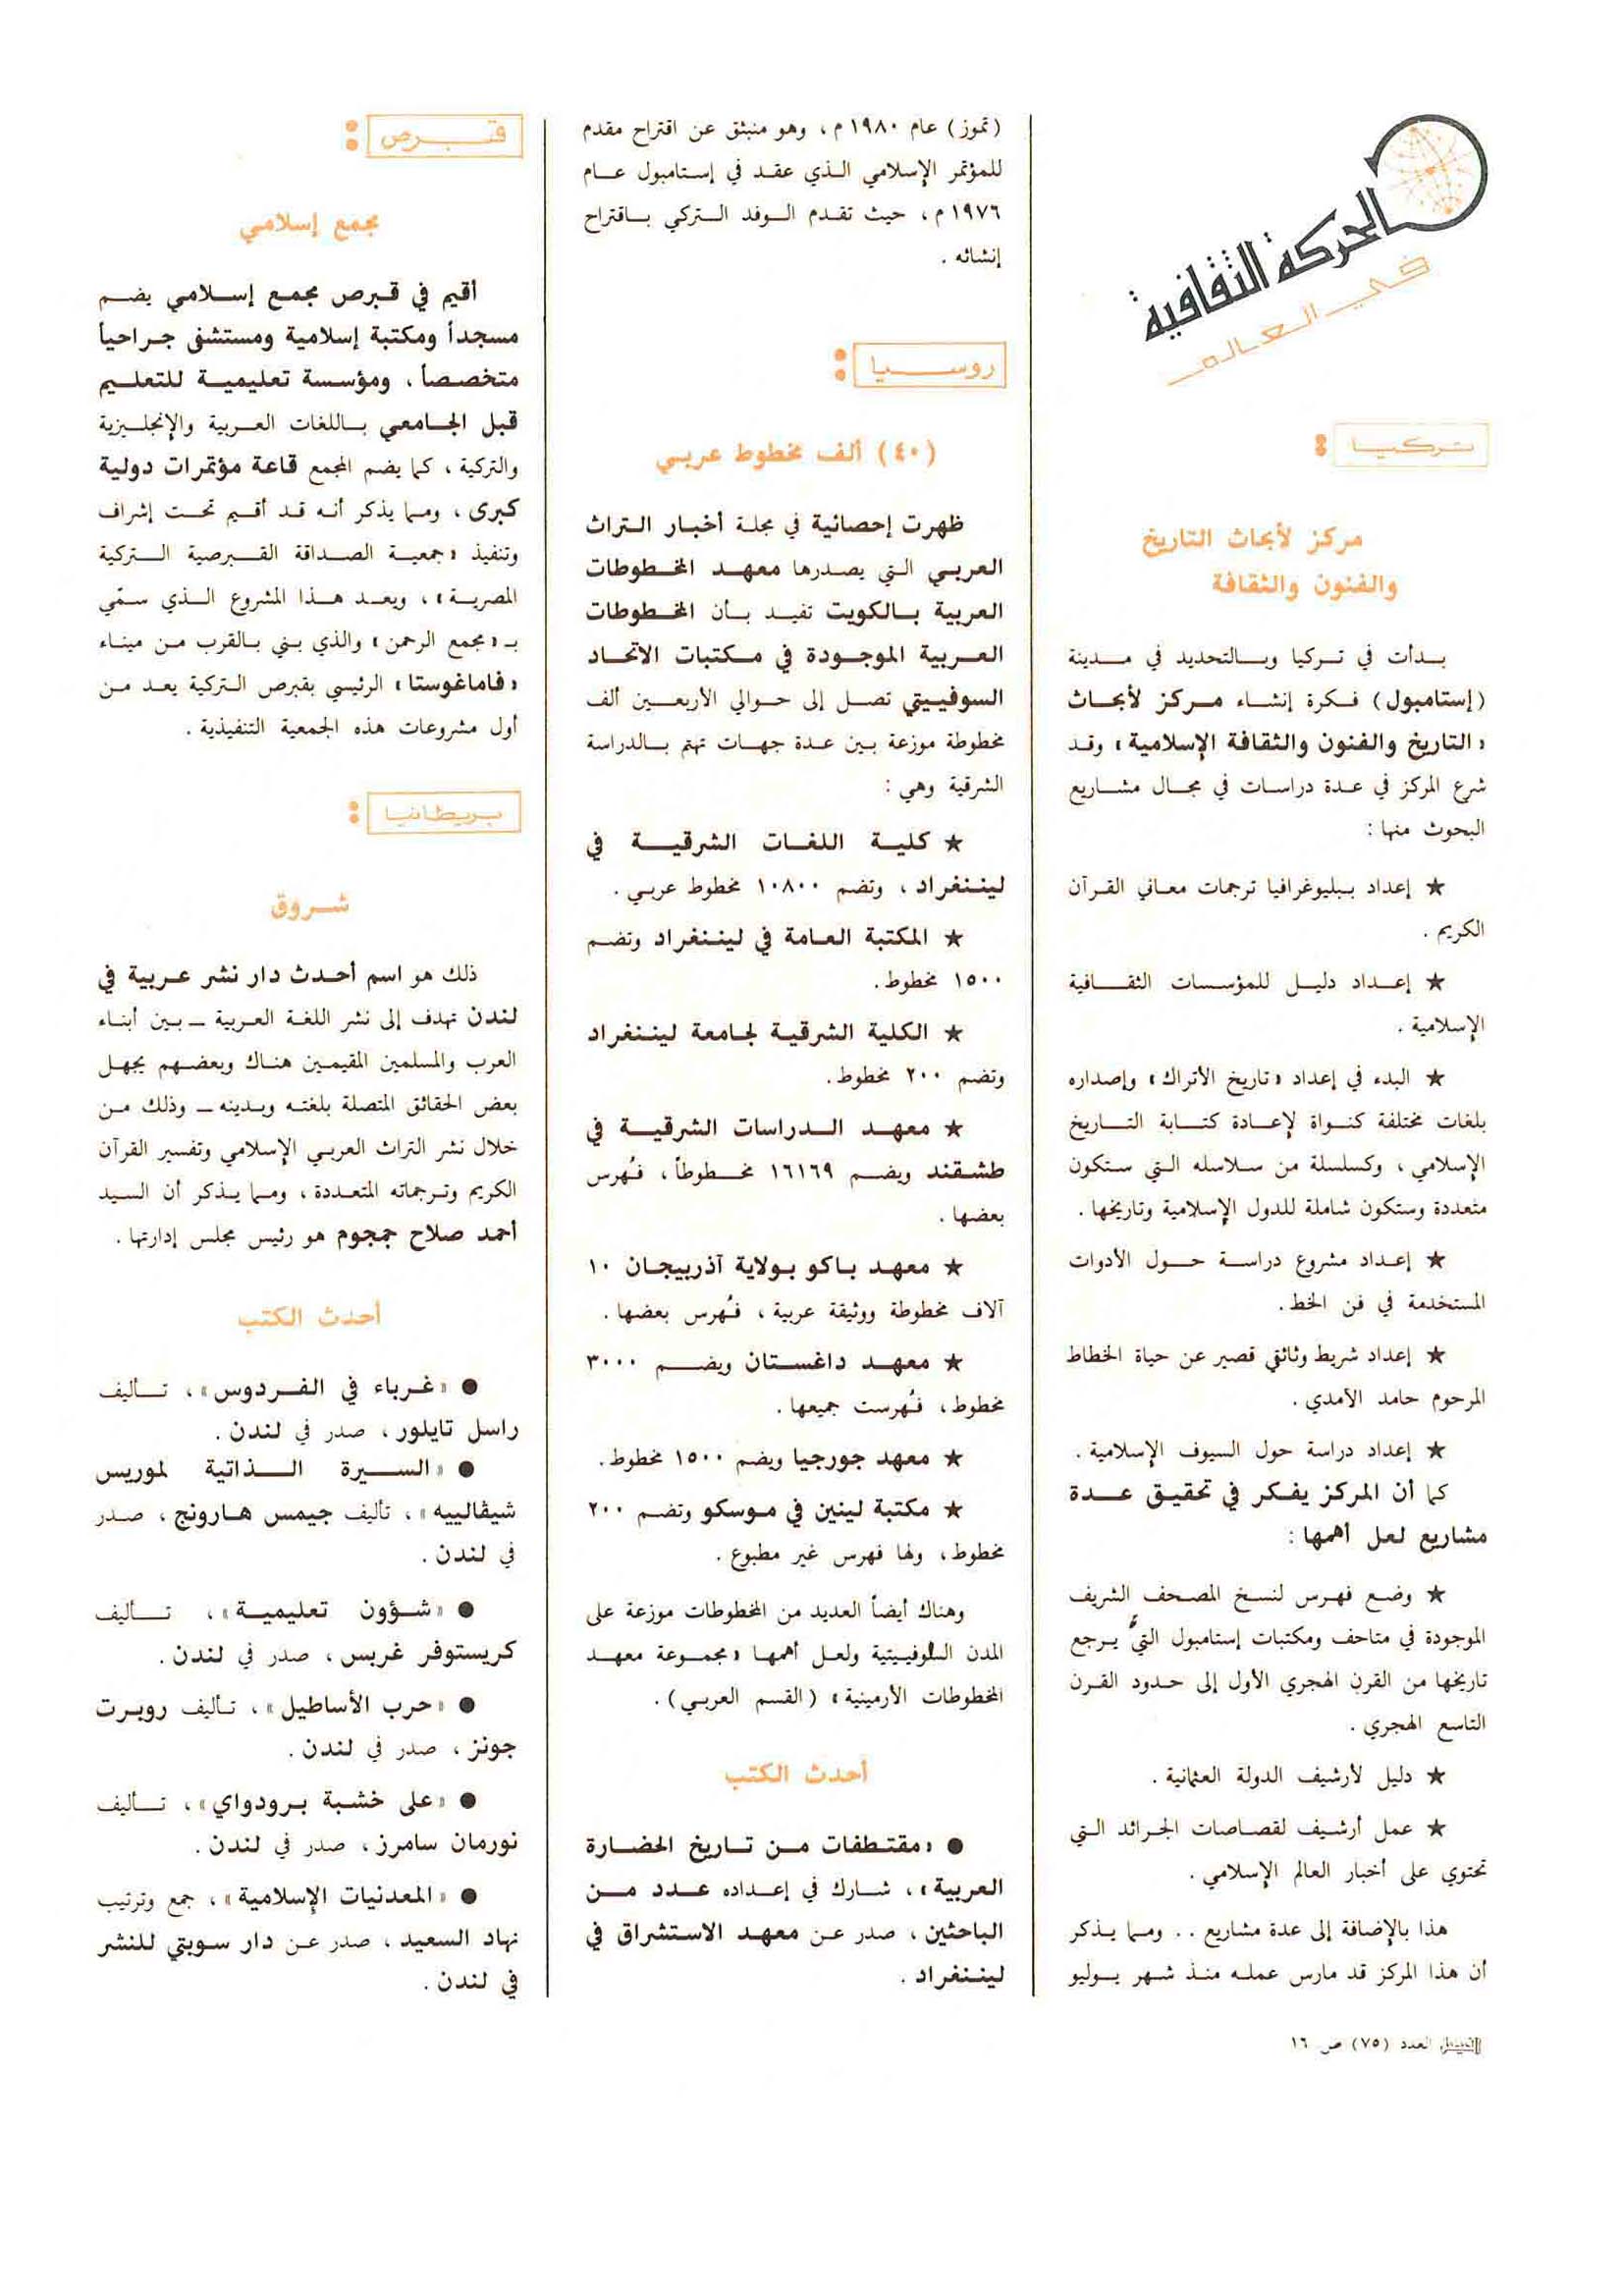 الحركة الثقافية
في العالم
تركيا :
مركز لأبحاث التاريخ
والفنون والثقافة
بدأت في تركيا وبالتحديد في مدينة
(إستامبول) فكرة إنشاء مركز لأبحاث
«التاريخ والفنون والثقافة الإسلامية» وقد
شرع المركز في عدة دراسات في مجال مشاريع
البحوث منها :
★ إعداد ببليوغرافيا ترجمات معاني القرآن
الكريم .
★ إعداد دليل للمؤسسات الثقافية
الإسلامية .
★ البدء في إعداد «تاريخ الأتراك» وإصداره
بلغات مختلفة كنواة لإعادة كتابة التاريخ
الإسلامي ، وكسلسلة من سلاسله التي ستكون
متعددة وستكون شاملة للدول الإسلامية وتاريخها .
★ إعداد مشروع دراسة حول الأدوات
المستخدمة في فن الخط .
★ إعداد شريط وثائقي قصير عن حياة الخطاط
المرحوم حامد الآمدي .
★ إعداد دراسة حول السيوف الإسلامية .
كما أن المركز يفكر في تحقيق عدة
مشاريع لعل أهمها :
★ وضع فهرس لنسخ المصحف الشريف
الموجودة في متاحف ومكتبات إستامبول التي يرجع
تاريخها من القرن الهجري الأول إلى حدود القرن
التاسع الهجري .
★ دليل لأرشيف الدولة العثمانية .
★ عمل أرشيف لقصاصات الجرائد التي
تحتوي على أخبار العالم الإسلامي .
هذا بالإضافة إلى عدة مشاريع . . ومما يذكر
أن هذا المركز قد مارس عمله منذ شهر يوليو
(تموز) عام ١٩٨٠ م ، وهو منبثق عن اقتراح مقدم
للمؤتمر الإسلامي الذي عقد في إستامبول عام
١٩٧٦ م ، حيث تقدم الوفد التركي باقتراح
إنشائه .
روسيا :
(٤٠) ألف مخطوط عربي
ظهرت إحصائية في مجلة أخبار التراث
العربي التي يصدرها معهد المخطوطات
العربية بالكويت تفيد بأن المخطوطات
العربية الموجودة في مكتبات الاتحاد
السوفييتي تصل إلى حوالي الأربعين ألف
مخطوطة موزعة بين عدة جهات تهتم بالدراسة
الشرقية وهي :
★ كلية اللغات الشرقية في
ليننغراد ، وتضم ١٠٨٠٠ مخطوط عربي .
★ المكتبة العامة في ليننغراد وتضم
١٥٠٠ مخطوط .
★ الكلية الشرقية لجامعة ليننغراد
وتضم ٢٠٠ مخطوط .
★ معهد الدراسات الشرقية في
طشقند ويضم ١٦١٦٩ مخطوطاً ، فُهرس
بعضها .
★ معهد باكو بولاية آذربيجان ١٠
آلاف مخطوطة ووثيقة عربية ، فُهرس بعضها .
★ معهد داغستان ويضم ٣٠٠٠
مخطوط ، فُهرست جميعها .
★ معهد جورجيا ويضم ١٥٠٠ مخطوط .
★ مكتبة لينين في موسكو وتضم ٢٠٠
مخطوط ، ولها فهرس غير مطبوع .
وهناك أيضاً العديد من المخطوطات موزعة على
المدن السوفييتية ولعل أهمها «مجموعة معهد
المخطوطات الأرمينية» (القسم العربي) .
أحدث الكتب
● «مقتطفات من تاريخ الحضارة
العربية» ، شارك في إعداده عدد من
الباحثين ، صدر عن معهد الاستشراق في
ليننغراد .
قبرص :
مجمع إسلامي
أقيم في قبرص مجمع إسلامي يضم
مسجداً ومكتبة إسلامية ومستشفى جراحياً
متخصصاً ، ومؤسسة تعليمية للتعليم
قبل الجامعي باللغات العربية والإنجليزية
والتركية ، كما يضم المجمع قاعة مؤتمرات دولية
كبرى ، ومما يذكر أنه قد أقيم تحت إشراف
وتنفيذ «جمعية الصداقة القبرصية التركية
المصرية» ، ويعد هذا المشروع الذي سمّي
بـ «مجمع الرحمن» والذي بني بالقرب من ميناء
«فاماغوستا» الرئيسي بقبرص التركية يعد من
أول مشروعات هذه الجمعية التنفيذية .
بريطانيا :
شروق
ذلك هو اسم أحدث دار نشر عربية في
لندن تهدف إلى نشر اللغة العربية ــ بين أبناء
العرب والمسلمين المقيمين هناك وبعضهم يجهل
بعض الحقائق المتصلة بلغته وبدينه ــ وذلك من
خلال نشر التراث العربي الإسلامي وتفسير القرآن
الكريم وترجماته المتعددة ، ومما يذكر أن السيد
أحمد صلاح جمجوم هو رئيس مجلس إدارتها .
أحدث الكتب
● «غرباء في الفردوس» ، تأليف
راسل تايلور ، صدر في لندن .
● «السيرة الذاتية لموريس
شيفالييه» ، تأليف جيمس هارونج ، صدر
في لندن .
● «شؤون تعليمية» ، تأليف
كريستوفر غريس ، صدر في لندن .
● «حرب الأساطيل» ، تأليف روبرت
جونز ، صدر في لندن .
● «على خشبة برودواي» ، تأليف
نورمان سامرز ، صدر في لندن .
● «المعدنيات الإسلامية» ، جمع وترتيب
نهاد السعيد ، صدر عن دار سوبتي للنشر
في لندن .
الفيصل العدد (٧٥) ص ١٦